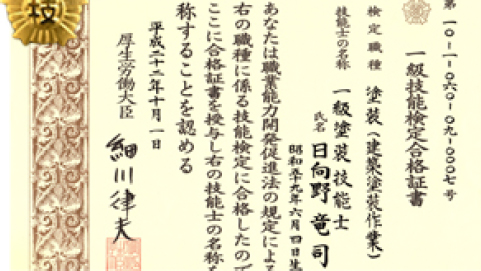 第一〇-一-〇六〇-〇九-〇〇〇七号
一級技能検定合格証書
検定職種 塗装(建築塗装作業)
技能士の名称 一級塗装技能士
氏名 日向野竜司
昭和五十九年六月四日生
あなたは職業能力開発促進法の規定による
右の職種に係る技能検定に合格したので
ここに合格証書を授与し右の技能士の名称を
称することを認める
平成二十二年十月一日
厚生労働大臣 細川律夫
技